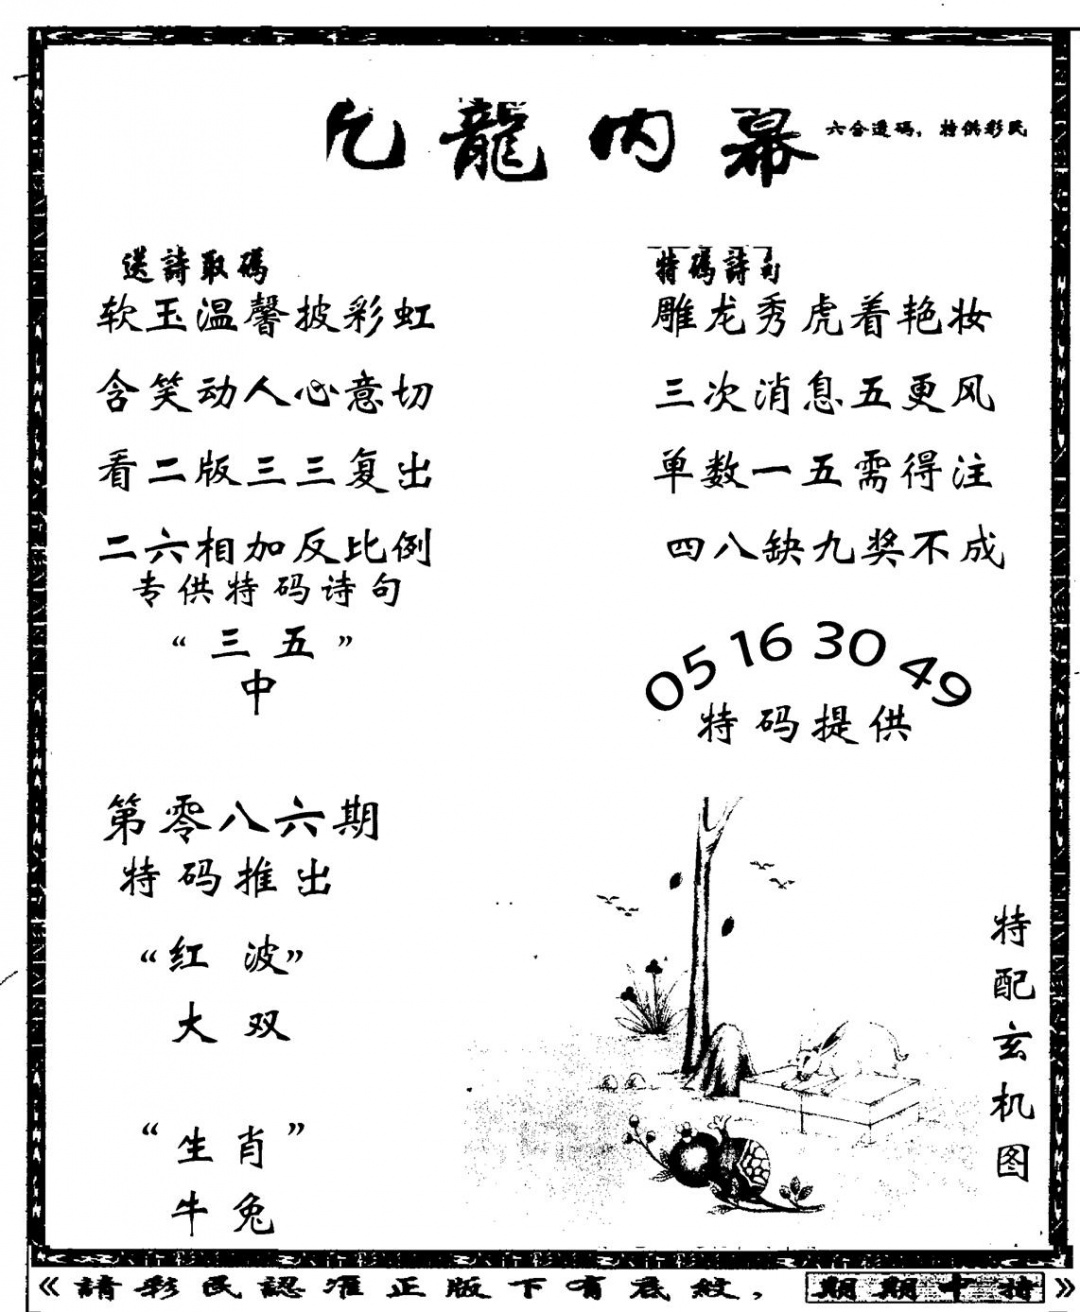 九龍内幕
六合透码，特供彩民
送詩取碼
软玉温馨披彩虹
含笑动人心意切
看二版三三复出
二六相加反比例
专供特码诗句
“三五”
中
特碼詩句
雕龙秀虎着艳妆
三次消息五更风
单数一五需得注
四八缺九奖不成
05 16 30 49
特码提供
第零八六期
特码推出
“红波”
大双
“生肖”
牛兔
特配玄机图
《請彩民認准正版下有底紋，期期中特》